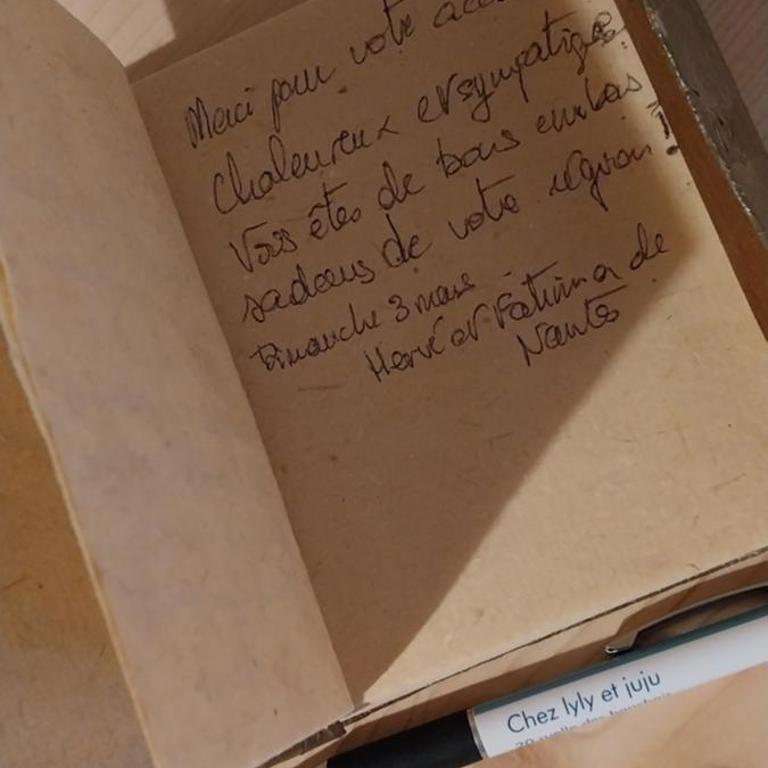 Merci pour votre
chaleureux et sympatique.
Vous êtes de bons embas
sadeurs de votre région !
Dimanche 3 mars
Hervé et Fatima de
Nantes
Chez lyly et juju